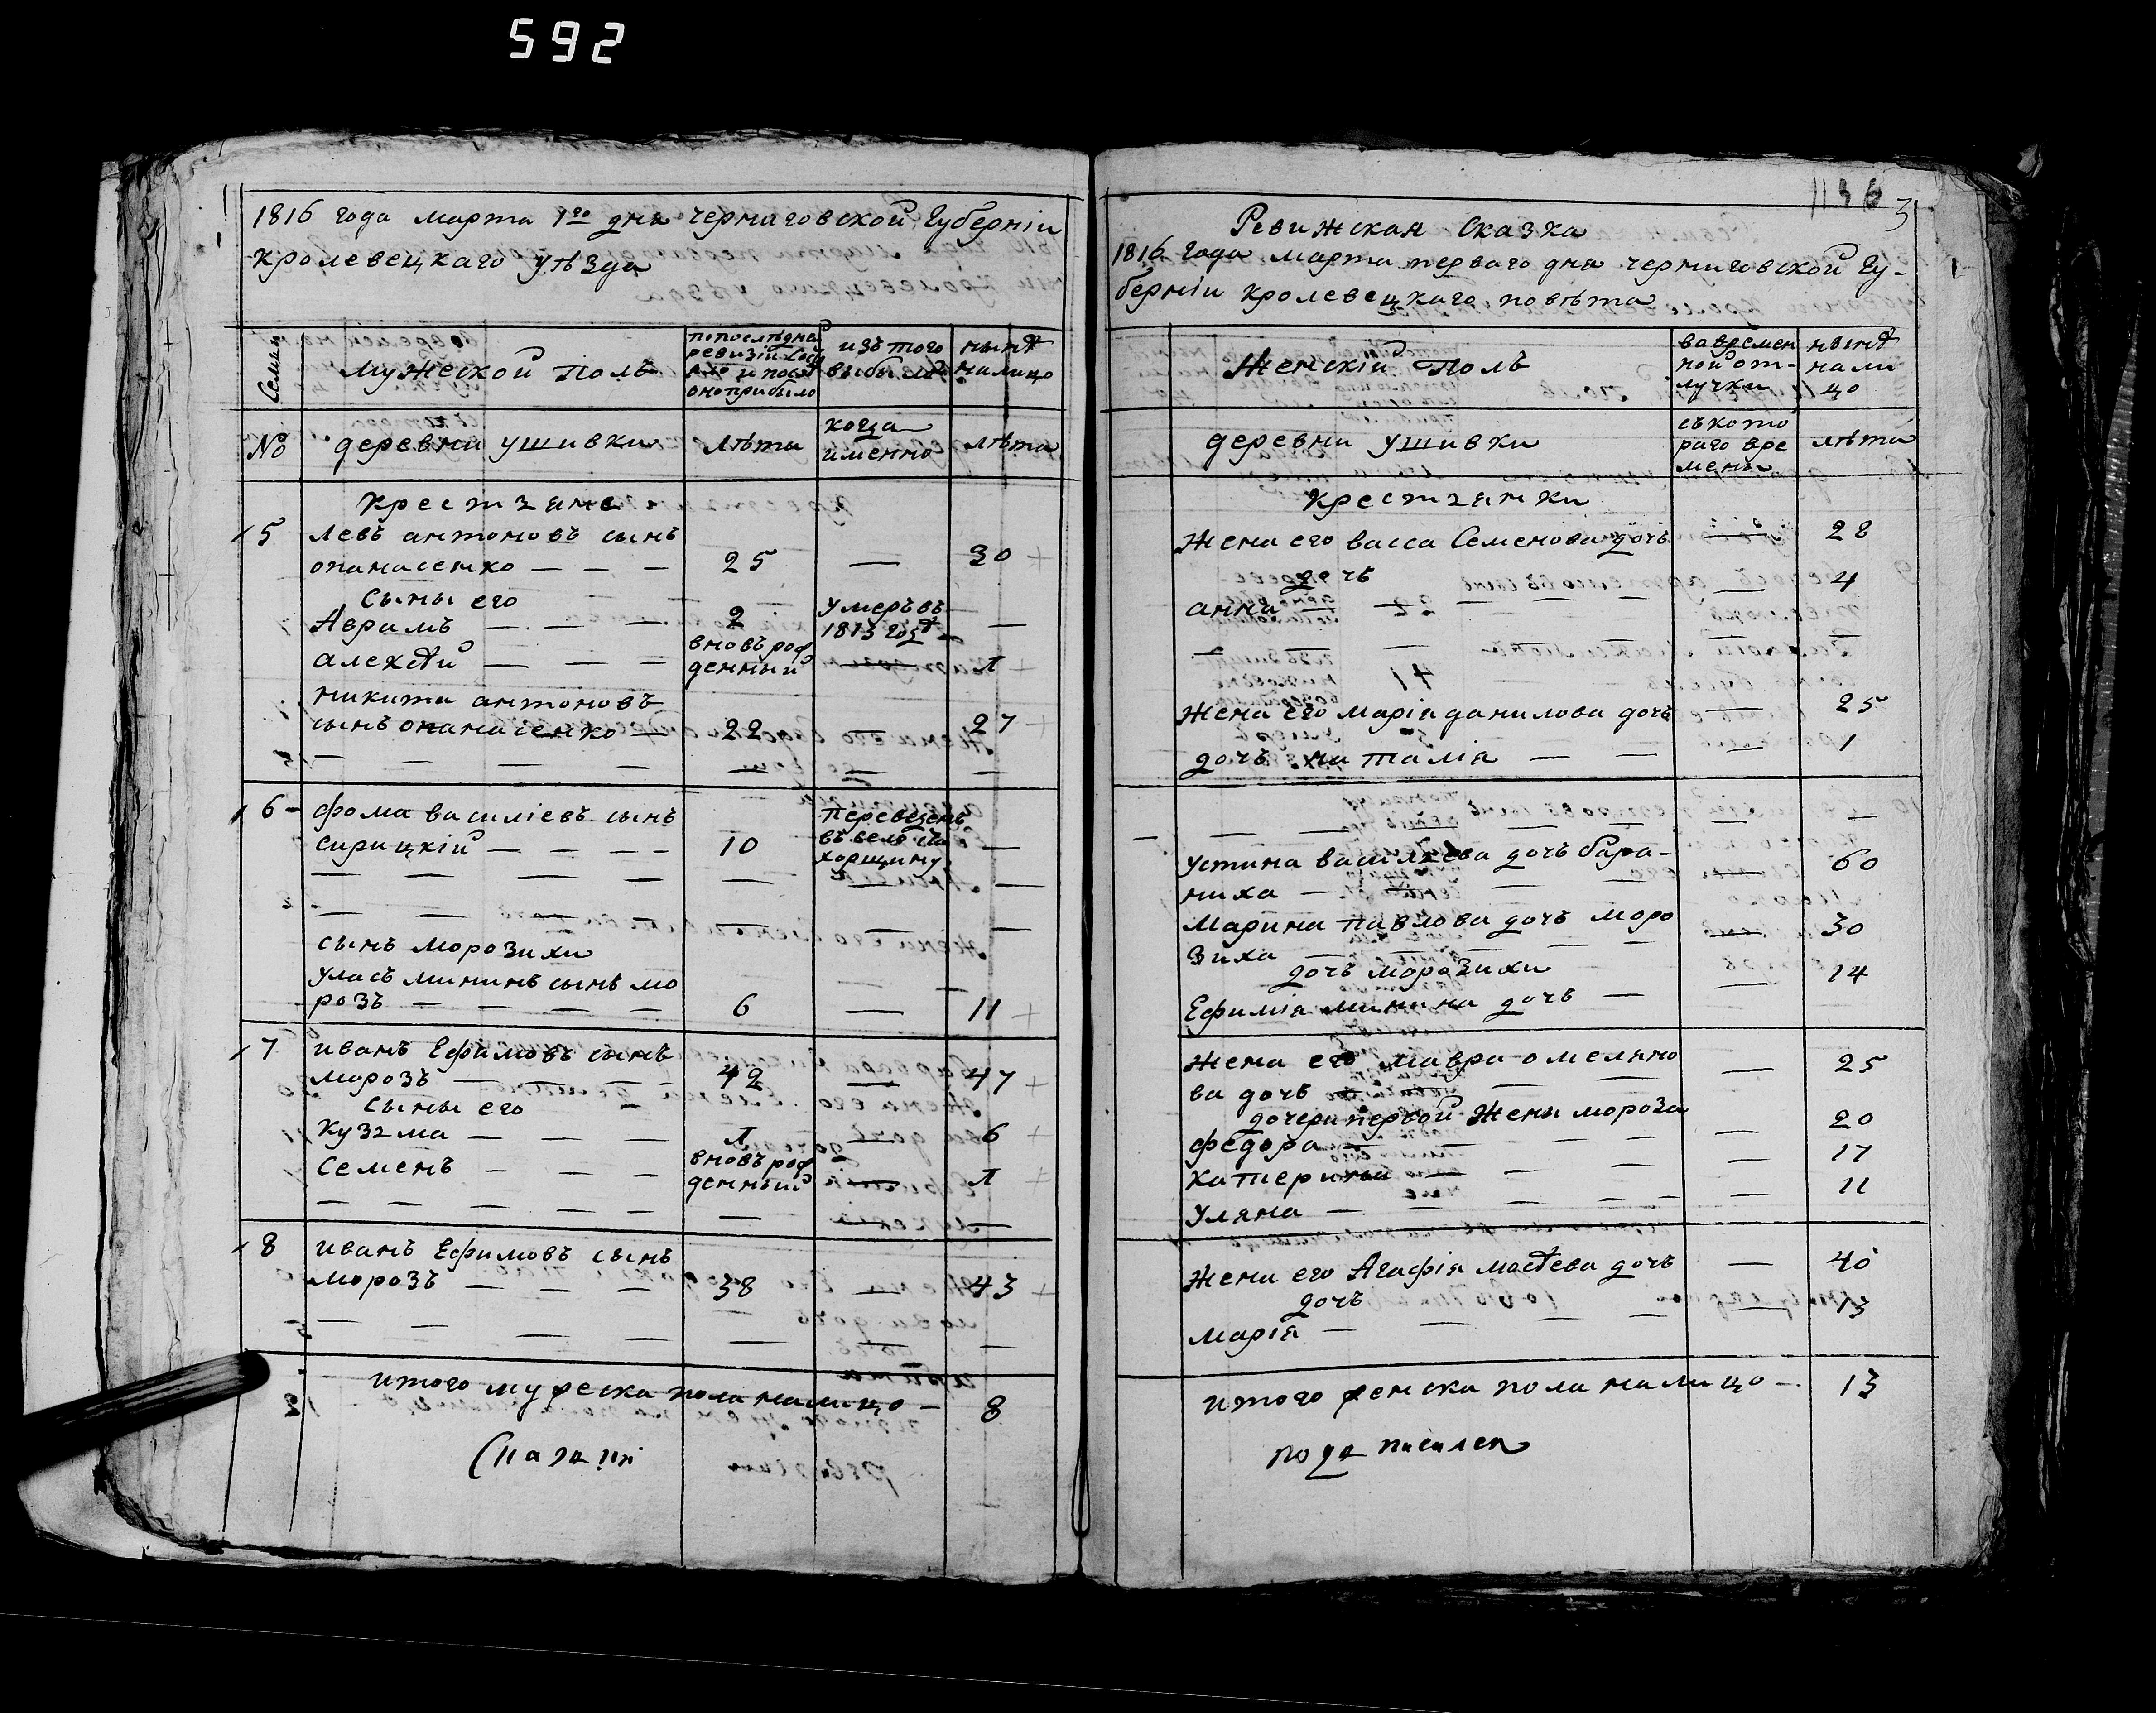 592
1816 года марта 1го дня черниговской Губерніи
кролевецкаго уѣзда
Семьи
мужеской полъ
попослѣдней
ревизіи состо
яло и после
оноприбыло
изъ того
выбыло
нынѣ
налицо
№
деревни ушивки
лѣта
когда
именно
лѣта
Крестьяне
5
левъ антоновъ сынъ
опанасенко — — —
25
—
30
сыны его
Аврамъ — — —
2
умеръ въ
1813 годѣ
—
алексѣй — — —
вновърож
денный
—
1
никита антоновъ
сынъ опанасенко —
22
—
27
6
фома василіевъ сынъ
сирицкій — — — —
10
Переведенъ
въ
—
сынъ морозихи
уласъ мининъ сынъ мо
розъ — — — —
6
—
11
7
иванъ Ефимовъ сынъ
морозъ — — — —
42
—
47
сыны его
Кузьма — — —
1
—
6
Семенъ — — —
вновърож
денный
—
1
8
иванъ Ефимовъ сынъ
морозъ — — — —
38
—
43
итого мужеска пола налицо —
8
1136
3
Ревижская Сказка
1816 года марта перваго дня черниговской Гу-
берніи кролевецкаго повѣта
Женскій Полъ
вовремен
ной от-
лучки
нынѣ
нали
цо
деревни ушивки
съкото
раго вре
мены
лѣта
Крестьянки
Жена его васса Семенова дочь
—
28
дочь
4
анна —
Жена его марія данилова дочь
—
25
дочь наталія — —
—
1
устина васильева дочь бара-
ниха —
60
Марина павлова дочь моро
зиха —
—
30
дочь морозихи
14
Ефимія минина дочь —
—
Жена его мавра омеляно
ва дочь —
—
25
дочери первой жены мороза
федора —
—
20
катерина —
—
17
уляна —
—
11
Жена его Агафія мосѣева дочь
—
40
дочь
—
13
марія —
итого женска пола налицо —
13